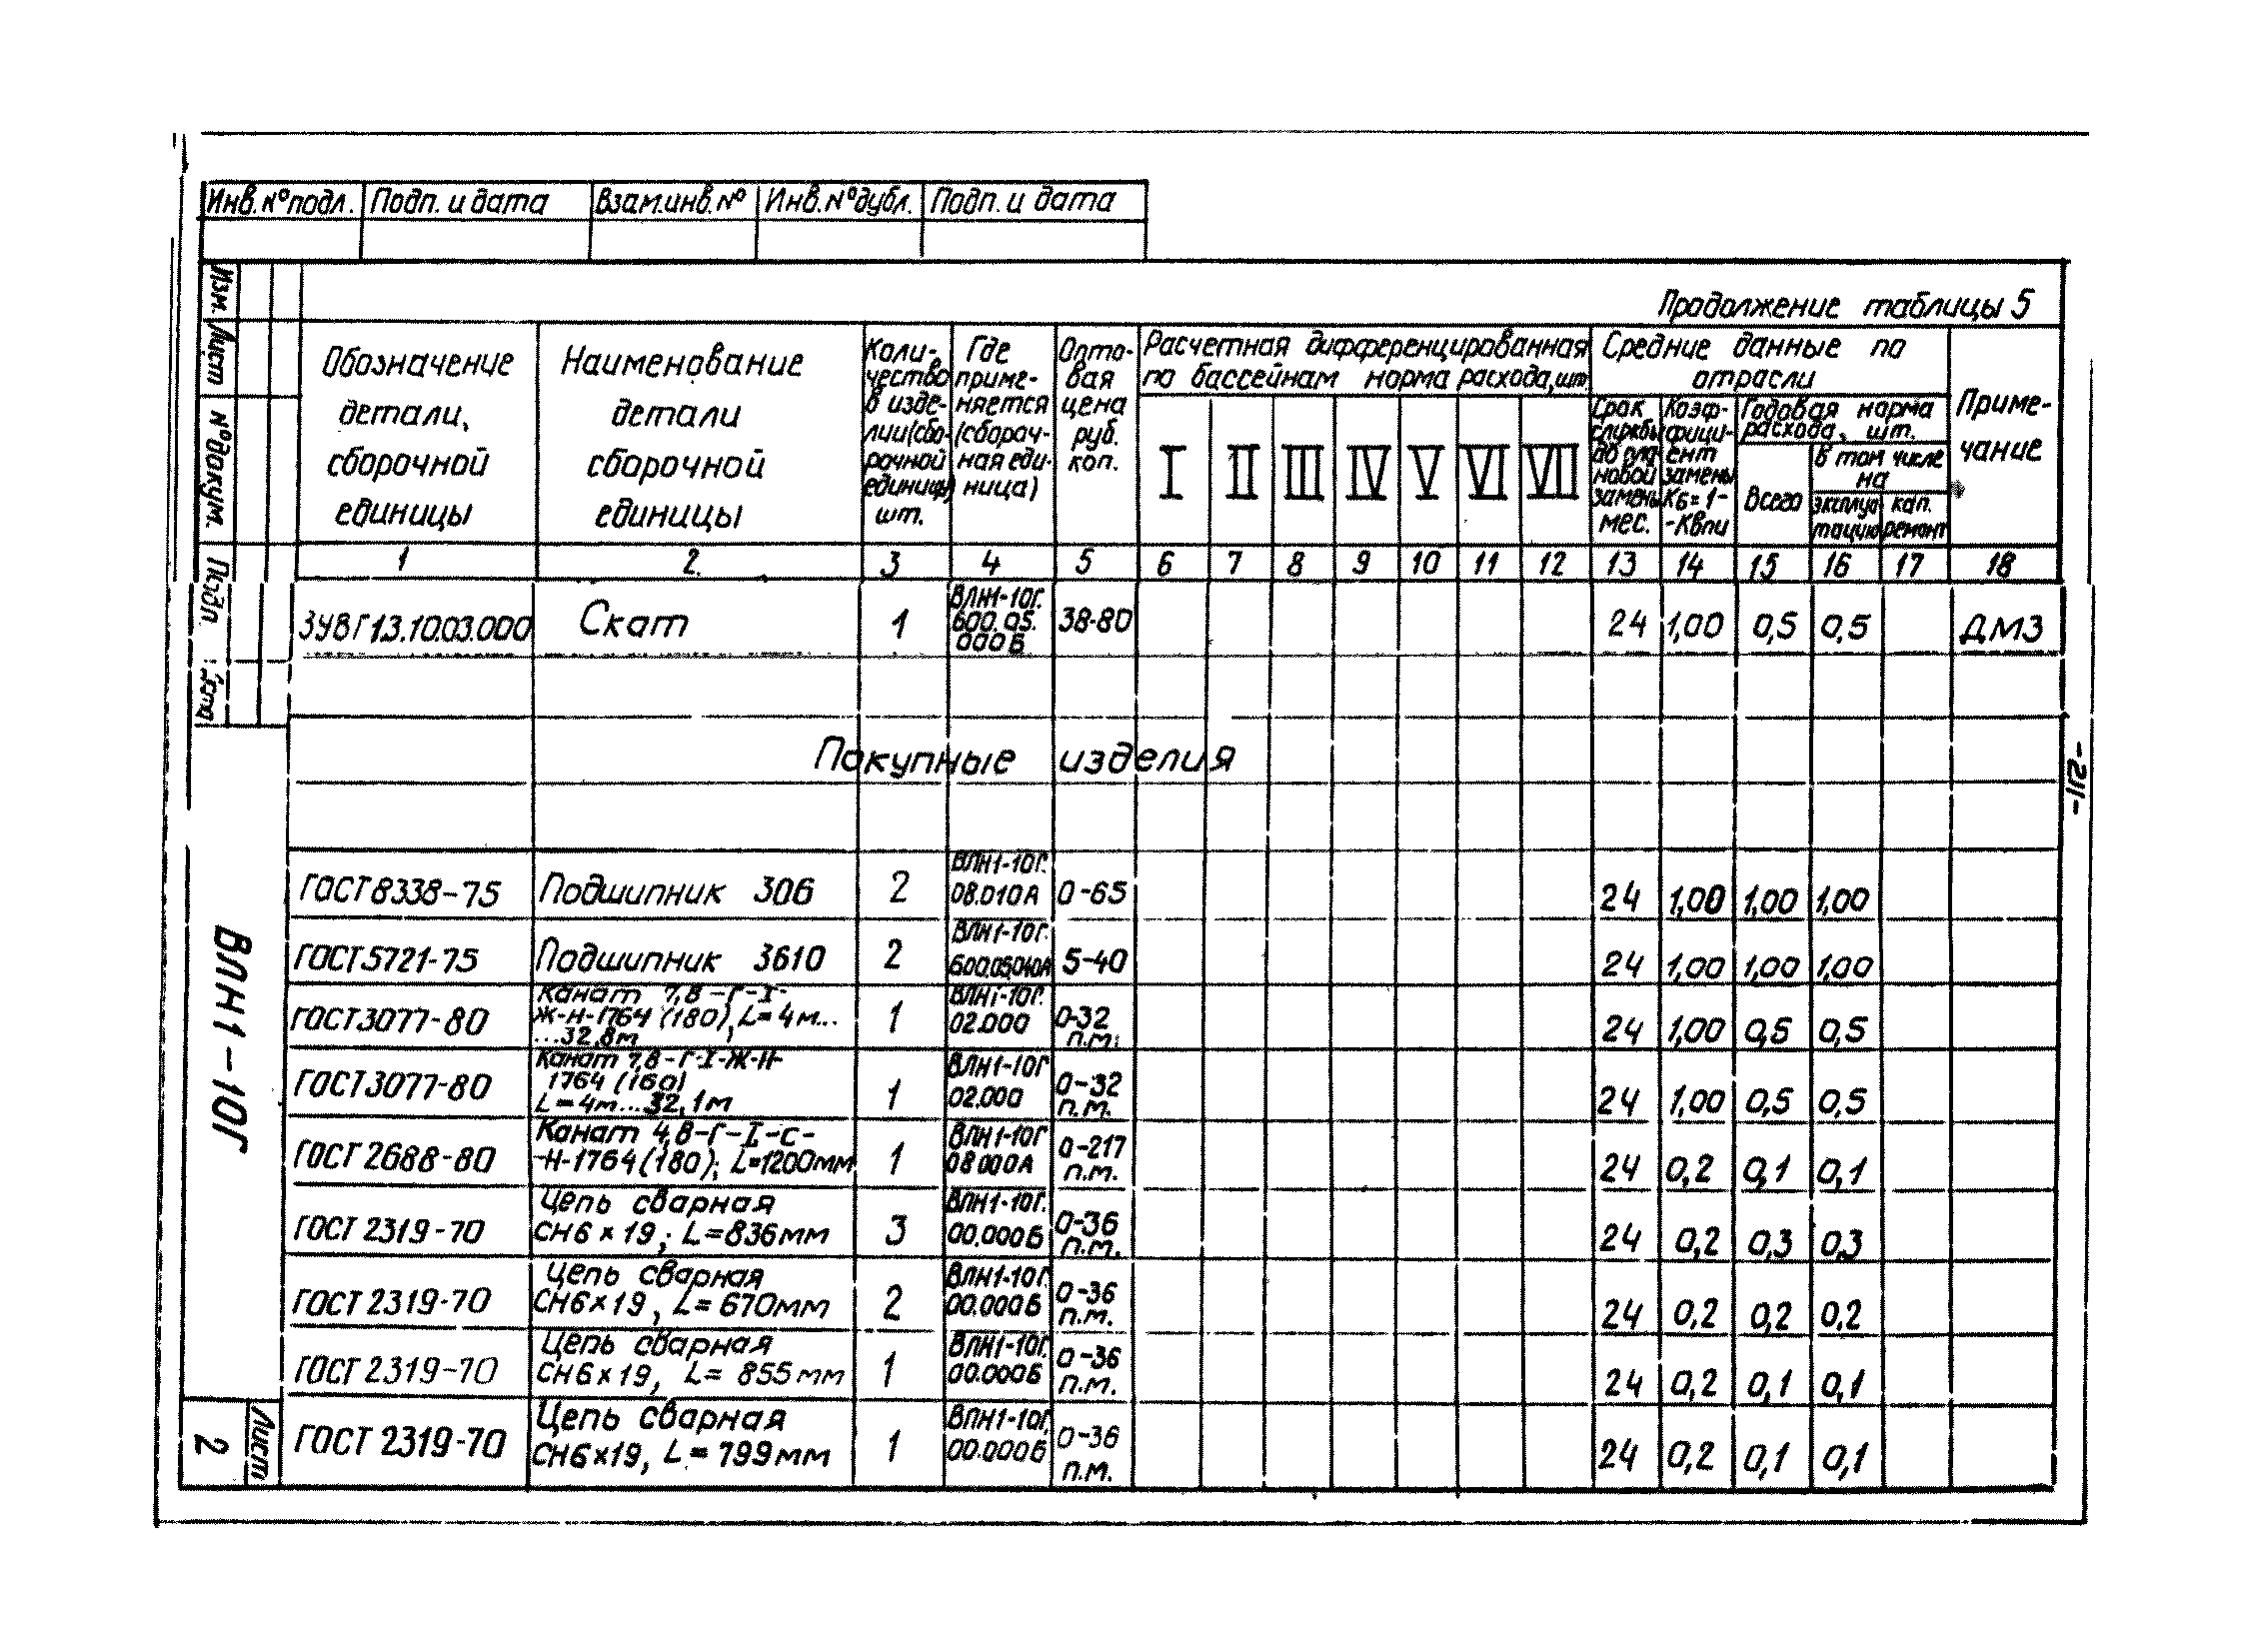 Инв.№подл. Подп. и дата Взам.инв.№ Инв.№дубл. Подп. и дата
Изм. Лист №докум. Подп. Дата
Продолжение таблицы 5
Обозначение детали, сборочной единицы
Наименование детали сборочной единицы
Коли-чество в изде-лии(сбо-рочной единице) шт.
Где приме-няется (сбороч-ная еди-ница)
Опто-вая цена руб. коп.
Расчетная дифференцированная по бассейнам норма расхода, шт.
I II III IV V VI VII
Средние данные по отрасли
Срок службы до плановой замены мес.
Коэф-фици-ент замены Кб=1-Квпи
Годовая норма расхода, шт.
Всего
в том числе на
эксплуатацию кап. ремонт
Приме-чание
1 2. 3 4 5 6 7 8 9 10 11 12 13 14 15 16 17 18
3УВГ13.10.03.000 Скат 1 ВЛН1-10Г.600.05.000В 38-80 24 1,00 0,5 0,5 ДМЗ
Покупные изделия
ГОСТ8338-75 Подшипник 306 2 ВЛН1-10Г.08.010А 0-65 24 1,00 1,00 1,00
ГОСТ5721-75 Подшипник 3610 2 ВЛН1-10Г.600.05040А 5-40 24 1,00 1,00 1,00
ГОСТ3077-80 Канат 7,8-Г-I-Ж-Н-1764 (180), L=4м... ...32,8м 1 ВЛН1-10Г.02.000 0-32 п.м. 24 1,00 0,5 0,5
ГОСТ3077-80 Канат 7,8-Г-I-Ж-Н-1764 (160) L=4м...32,1м 1 ВЛН1-10Г 02.000 0-32 п.м. 24 1,00 0,5 0,5
ГОСТ2688-80 Канат 4,8-Г-I-С--Н-1764(180); L=1200мм 1 ВЛН1-10Г 08000А 0-217 п.м. 24 0,2 0,1 0,1
ГОСТ 2319-70 Цепь сварная СН6×19; L=836мм 3 ВЛН1-10Г.00.000Б 0-36 п.м. 24 0,2 0,3 0,3
ГОСТ 2319-70 Цепь сварная СН6×19, L=670мм 2 ВЛН1-10Г.00.000Б 0-36 п.м. 24 0,2 0,2 0,2
ГОСТ 2319-70 Цепь сварная СН6×19, L= 855мм 1 ВЛН1-10Г.00.000Б 0-36 п.м. 24 0,2 0,1 0,1
ГОСТ 2319-70 Цепь сварная СН6×19, L=799мм 1 ВЛН1-10Г.00.000Б 0-36 п.м. 24 0,2 0,1 0,1
ВЛН1-10Г
Лист
2
-211-